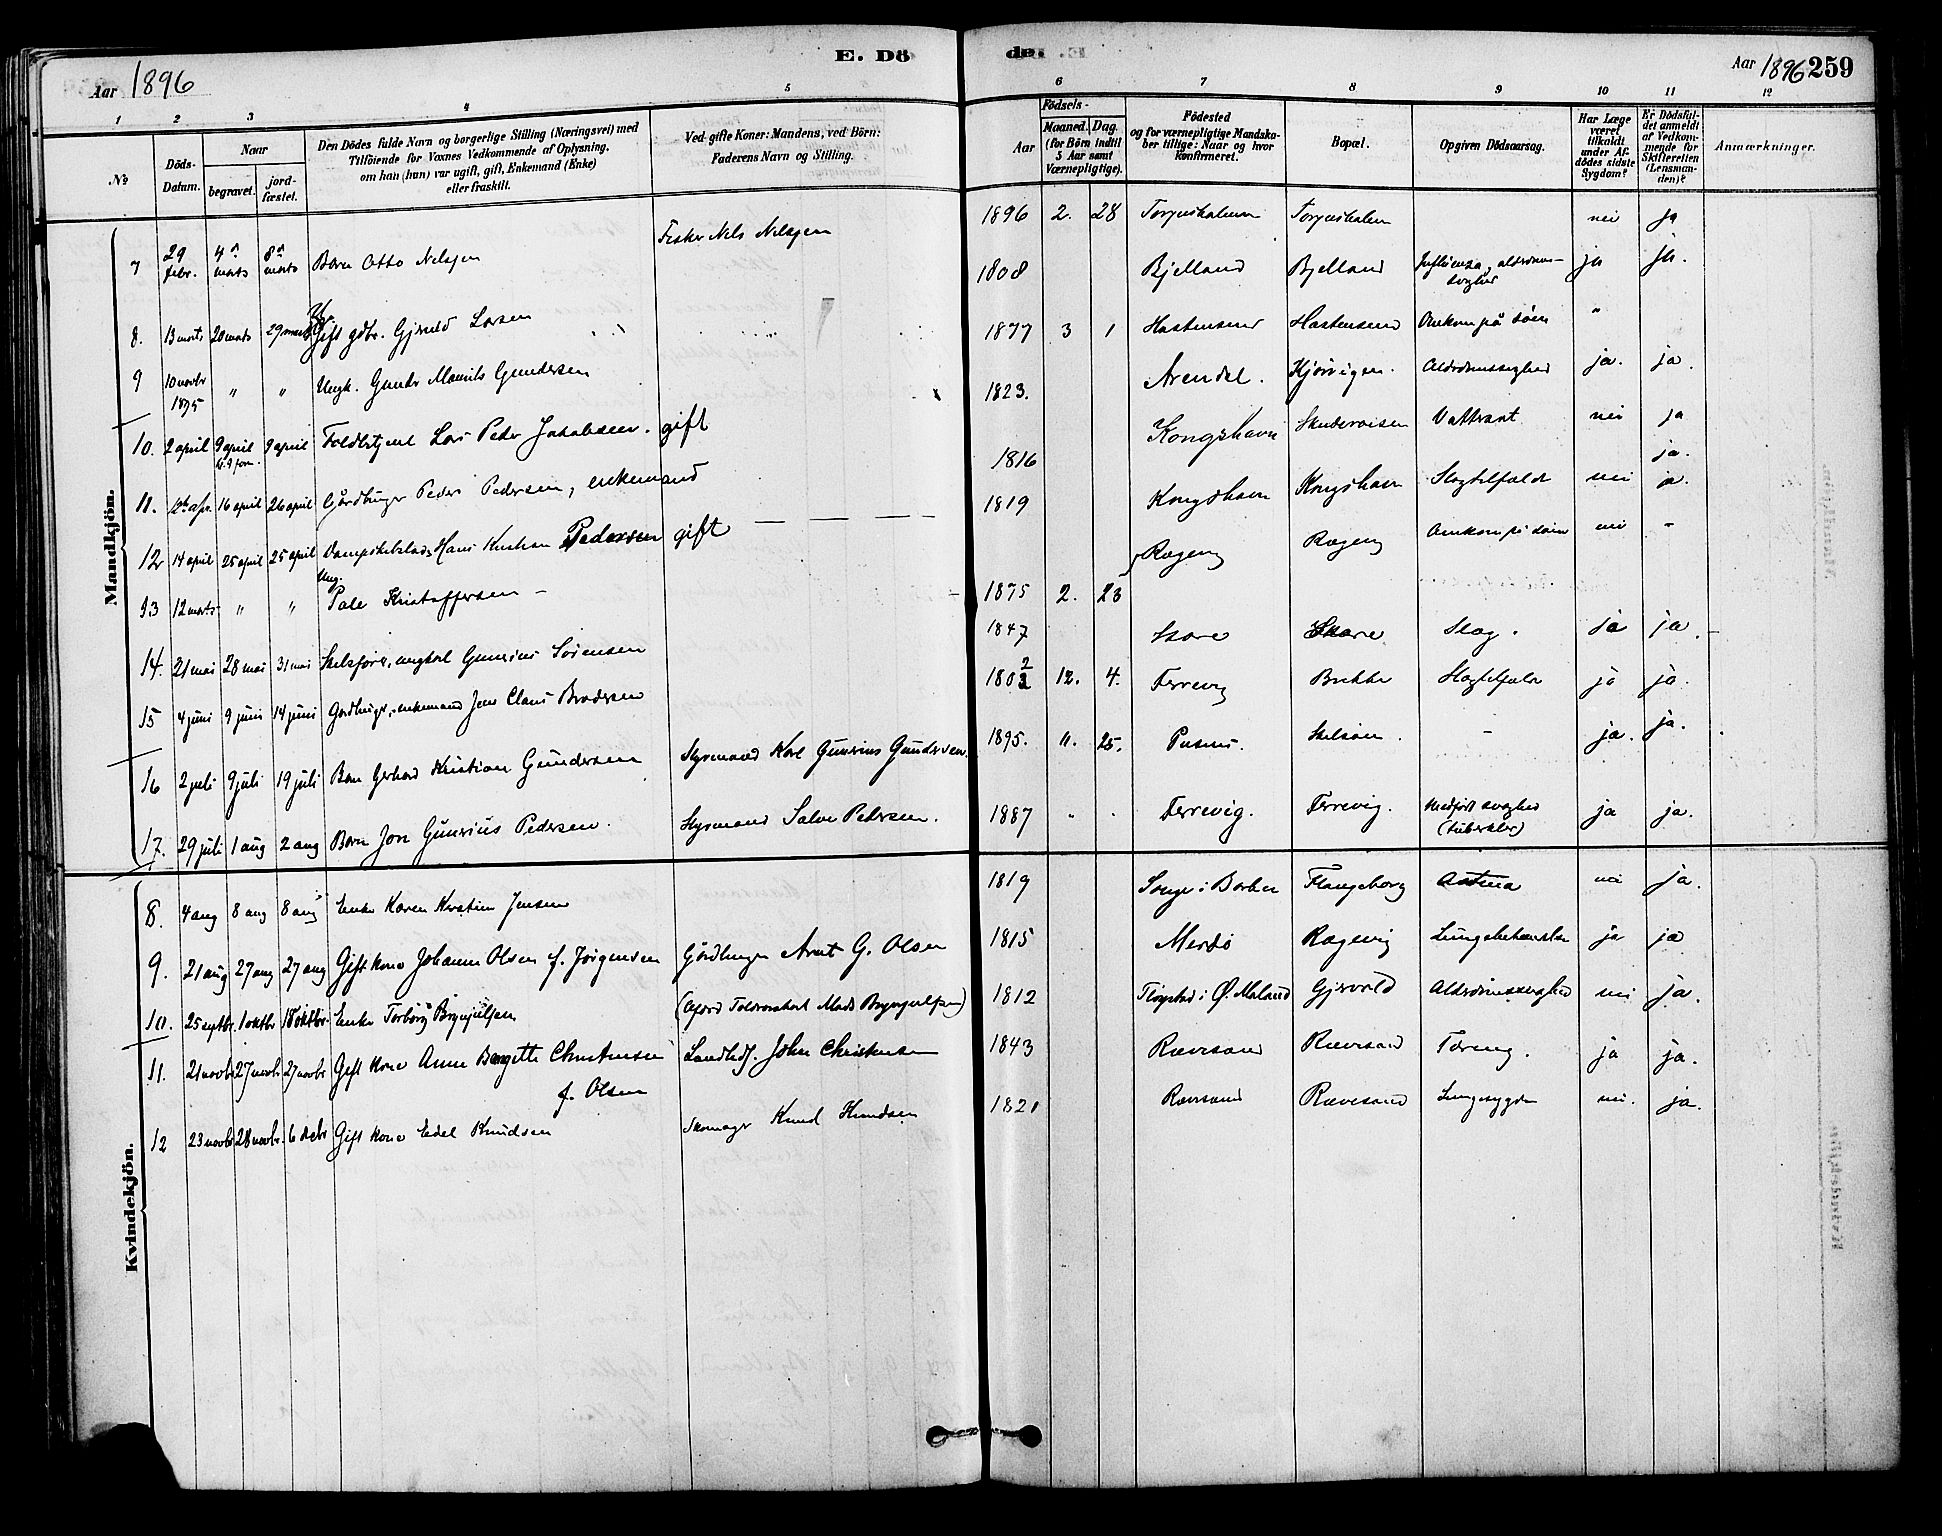 Aar 1896 E. Dö de: Aar 1896 259
1 2 3 4 5 6 7 8 9 10 11 12
No
Döds-Datum.
Naar
begravet. jordfæstet.
Den Dödes fulde Navn og borgerlige Stilling (Næringsvei) med
Tilföiende for Voxnes Vedkommende af Oplysning,
om han (hun) var ugift, gift, Enkemand (Enke)
eller fraskilt.
Ved gifte Koner: Mandens, ved Börn:
Faderens Navn og Stilling.
Födsels-
Aar Maaned. Dag.
(for Börn indtil
5 Aar samt
Værnepligtige).
Födested
og for værnepligtige Mandskaber
tillige: Naar og hvor
konfirmeret.
Bopæl.
Opgiven Dödsaarsag.
Har Læge
været
tilkaldt
under Afdödes
sidste
Sygdom?
Er Dödsfaldet
anmeldt
af Vedkommende
for
Skifteretten
(Lensmanden)?
Anmærkninger.
Mandkjön.
7 29 febr. 4de marts 8de marts Barn Otto Nilsen Fisker Nils Nilsen 1896 2. 28 nei ja
8. 13 marts 20 marts 29 marts Gift gdbr. Gjeruld Larsen 1808 Bjelland Bjelland Influenza, ja ja.
9 10 novbr 1895 " " Ungk. Gundersen 1877 3 1 Hastensund Hastensund Omkom på søen "
10. 2 april 9 april 9 april Lars Peder Jakobsen. gift 1823. Arendal. Kjørvigen. Alderdomssvaghed ja. ja.
11. 16 april 26 april Peder Pedersen, enkemand 1816 Kongshavn Vattersot nei ja
12 14 april 25 april 25 april Hans Kristian Pedersen gift 1819 Kongshavn Kongshavn Slagtilfælde nei ja.
13 12 marts " " Ung. Pale Kristoffersen 1875 2. 23 Rægevig Rægevig Omkom på søen nei -
14. 21 mai 28 mai 31 mai Skibsfører, ungkarl Gunerius Sörensen 1847 Skare Skare Slag. ja ja.
15 4 juni 9 juni 14 juni enkemand Jens Claus Brodersen 1802 12. 4. Terrevig Brekke Slagtilfælde ja ja.
16 2 juli 9 juli 19 juli Barn Gerhard Kristian Gundersen Styrmand Karl Gunerius Gundersen. 1895. 11. 25. Pusnes. - ja. ja.
17. 29 juli 1 aug 2 aug Barn Gunerius Pedersen. Styrmand Salve Pedersen. 1887 " . Terrevig. Terrevig. Medfødt svaghed (tuberkler) ja ja.
Kvindekjön.
8. 4 aug 8 aug 8 aug Enke Karen Kirstine Jensen 1819 Songe i Astma nei ja.
9. 21 aug 27 aug 27 aug Gift kone Johanne Olsen f. Jörgensen Arnt G. Olsen 1815 Merdö Rægevig ja ja
10. 25 septbr. 1 oktbr 18 oktbr. Enke Torborg Brynjulfsen Mads Brynjulfsen) 1812 i Ø. Moland Gjervold Alderdomssvaghed nei ja.
11. 21 novbr 27 novbr. 27 novbr Gift kone Anne Birgitte Christensen f. Olsen John Christensen 1843 Rævesand Rævesand Tæring. ja ja.
12 23 novbr 28 novbr. 6 debr Gift kone Edel Knudsen Skomager Knud Knudsen 1821 Rævesand Rævesand Lungesygdom nei. ja.